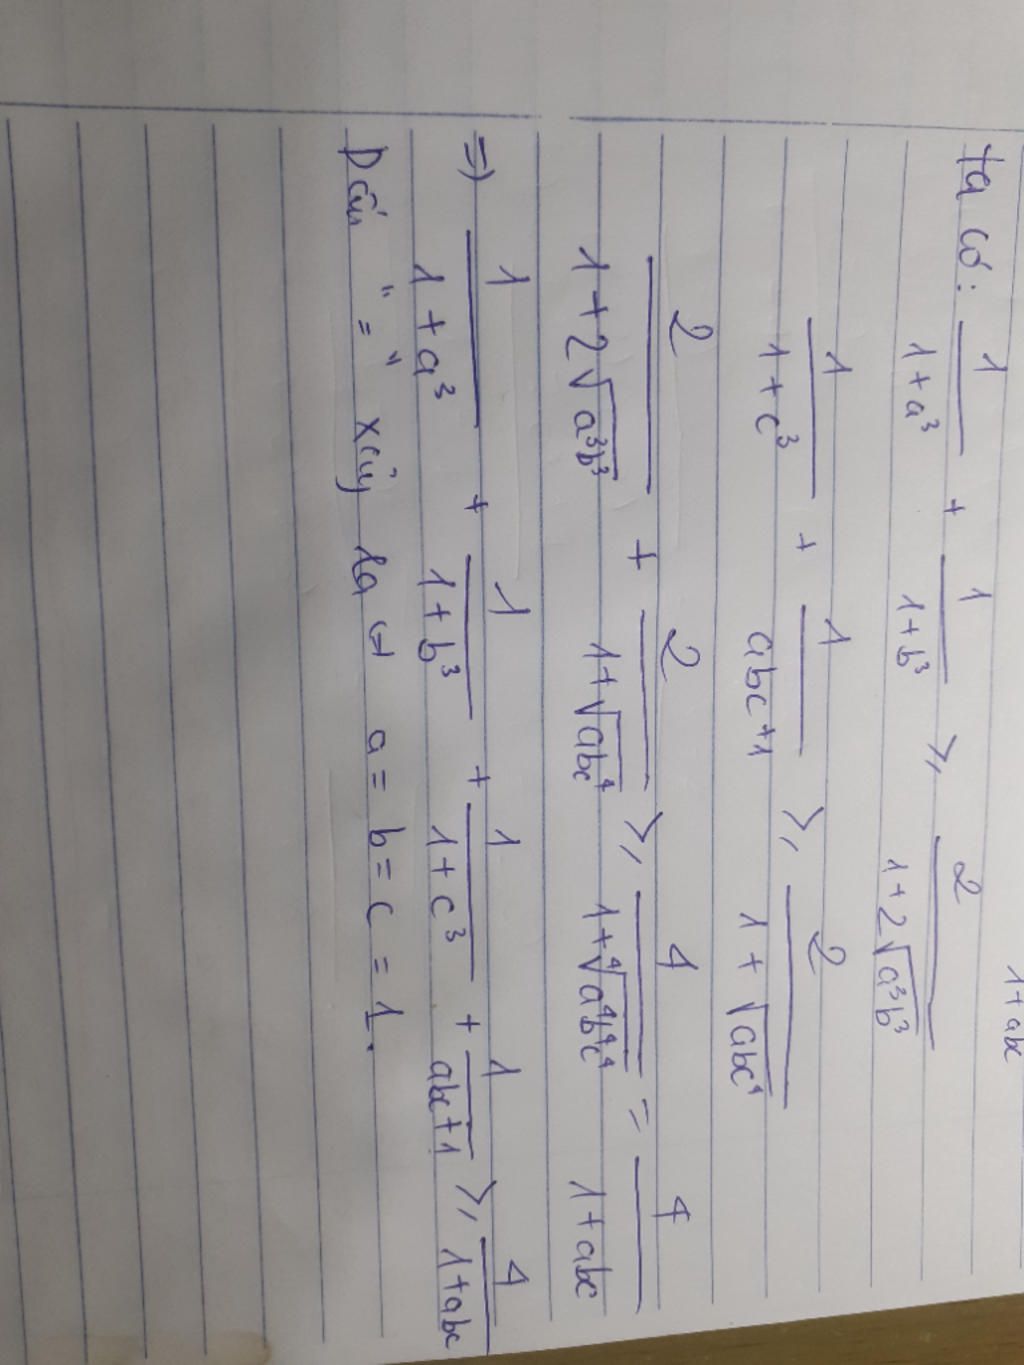 1+abc
ta có: 1/(1+a³) + 1/(1+b³) ≥ 2/(1+2√(a³b³))
1/(1+c³) + 1/(abc+1) ≥ 2/(1+√(abc⁴))
2/(1+2√(a³b³)) + 2/(1+√(abc⁴)) ≥ 4/(1+⁴√(a⁴b⁴c⁴)) = 4/(1+abc)
=) 1/(1+a³) + 1/(1+b³) + 1/(1+c³) + 1/(abc+1) ≥ 4/(1+abc)
Dấu "=" xảy ra (=) a = b = c = 1.